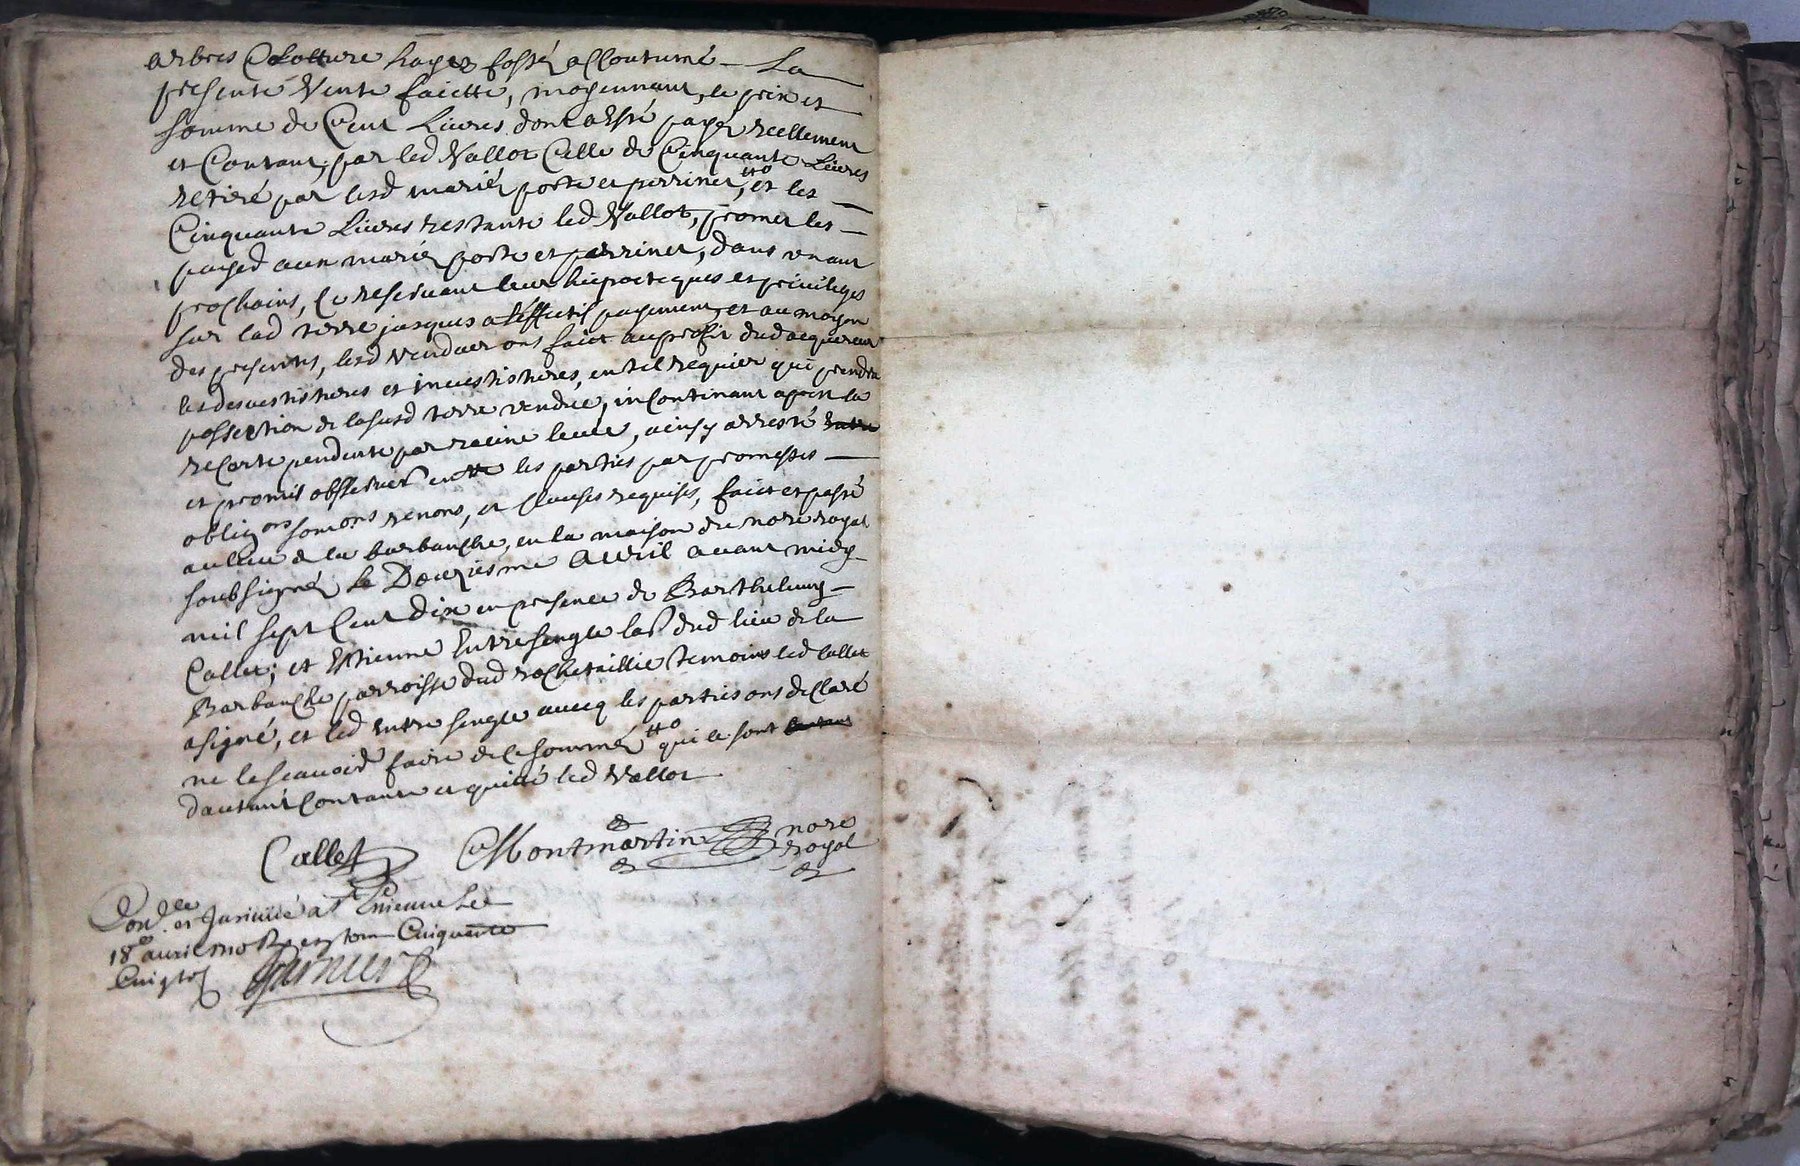 arbres Clotture hayes fossés accoutumé — La
presente Vente faictte, moyennant, le prix et
somme de Cent Livres, dont a Esté payé reellement
et Contant, par led Vallot Celle de Cinquante Livres
retiré par lesd mariés porte et perrinet, et les —
Cinquante Livres restante led Vallot, promet les —
payer aux mariés porte et perrinet, dans un an
prochains, Ce reservant leur hipoteques et privileges
sur lad terre jusques a l'effectif payement, et au moyen
des presents, lesd vendeur ons faict au profit dud acquereur
les desvestitures et investistures, en tel requier qui prendra
possettion de la susd terre vendue, incontinant apres la
recorte pendente par racine levée, ainsy arresté
et promis observer entre les parties par promesses —
oblig.ons soum.ons renons, et clauses requises, faict et passé
au lieu de la barbanche, en la maison du nore royal
soubsigné, le Douziesme Avril avant midy —
mil sept Cent Dix en presence de Barthelemy —
Callet; et Estienne Entresengle lab.r dud lieu de la
Barbanche parroisse dud rochetaillie temoins led Callet
a signé, et led Entresengle avecq les parties ons declaré
ne le sçavoir faire de ce sommés qui ce sont
d'autant Contante et quitté led Vallot
Callet Montmartin nore
royal
Con.lle et Insinué a St Etienne Le
18e avril 1710 R
Garnier